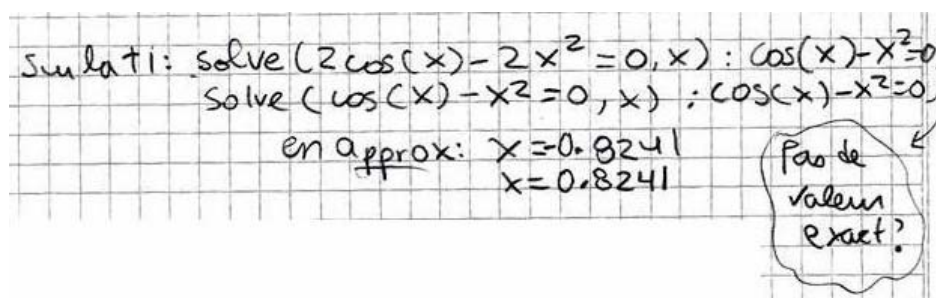 Sur la ti: solve(2cos(x)-2x²=0,x): cos(x)-x²=0
solve(cos(x)-x²=0,x) : cos(x)-x²=0
en approx: x=-0.8241
x=0.8241
Pas de
valeur
exact?